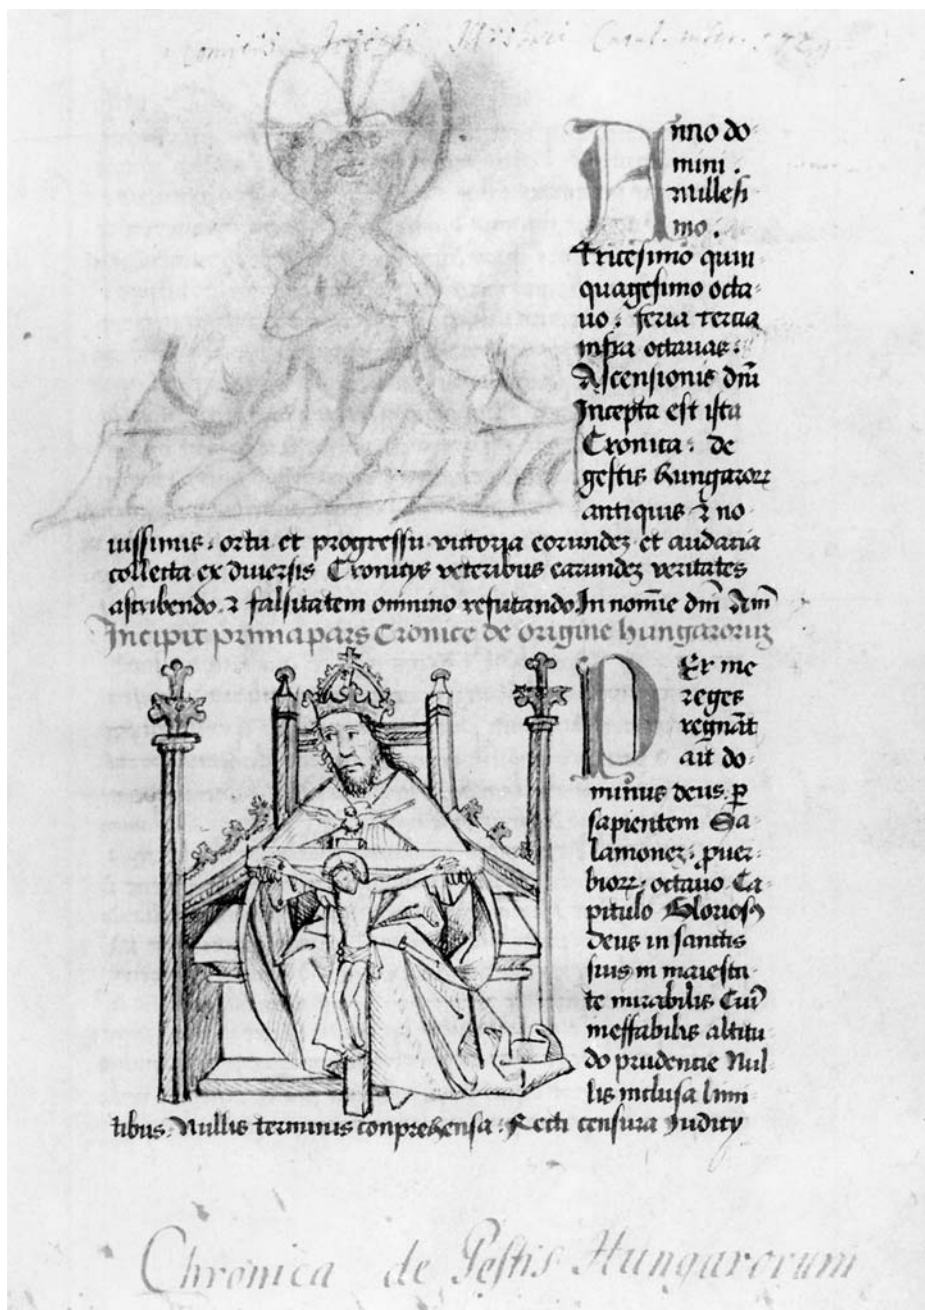 Anno do-
mini .
Millesi
mo .
Tricesimo quin
quagesimo octa-
uo : feria tercia
infra octauas :
Ascensionis dnī
Incepta est ista
Cronica : de
gestis hungaroꝝ
antiquis ⁊ no
uissimis . ortu et progressu victoria eorundeʒ et audatia
collecta ex diuersis Cronicys veteribus earundeʒ veritates
ascribendo . ⁊ falsitatem omnino refutando . In noīe dnī Am̄
Incipit prima pars Cronice de origine hungaroruʒ
Per me
reges
regnāt
ait do-
minus deus . ꝑ
sapientem Sa
lamoneʒ . puer-
bioꝝ . octauo Ca
pitulo Gloriosꝰ
deus in sanctis
suis in maiesta
te mirabilis Cuiꝰ
ineffabilis altitu
do prudencie Nul
lis inclusa limi
tibus . Nullis terminis conprehensa . Recti censura Iudicy
Chronica de Gestis Hungarorum